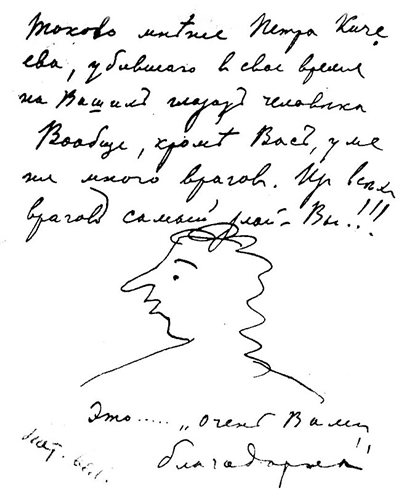 Таково мнѣніе Петра Киче-
ева, убившаго в свое время
на Вашихъ глазахъ человѣка
Вообще, кромѣ Васъ, у ме
ня много враговъ. Из всѣхъ
враговъ самый злой — Вы!!!
Это..... „очень Вами
благодарна"